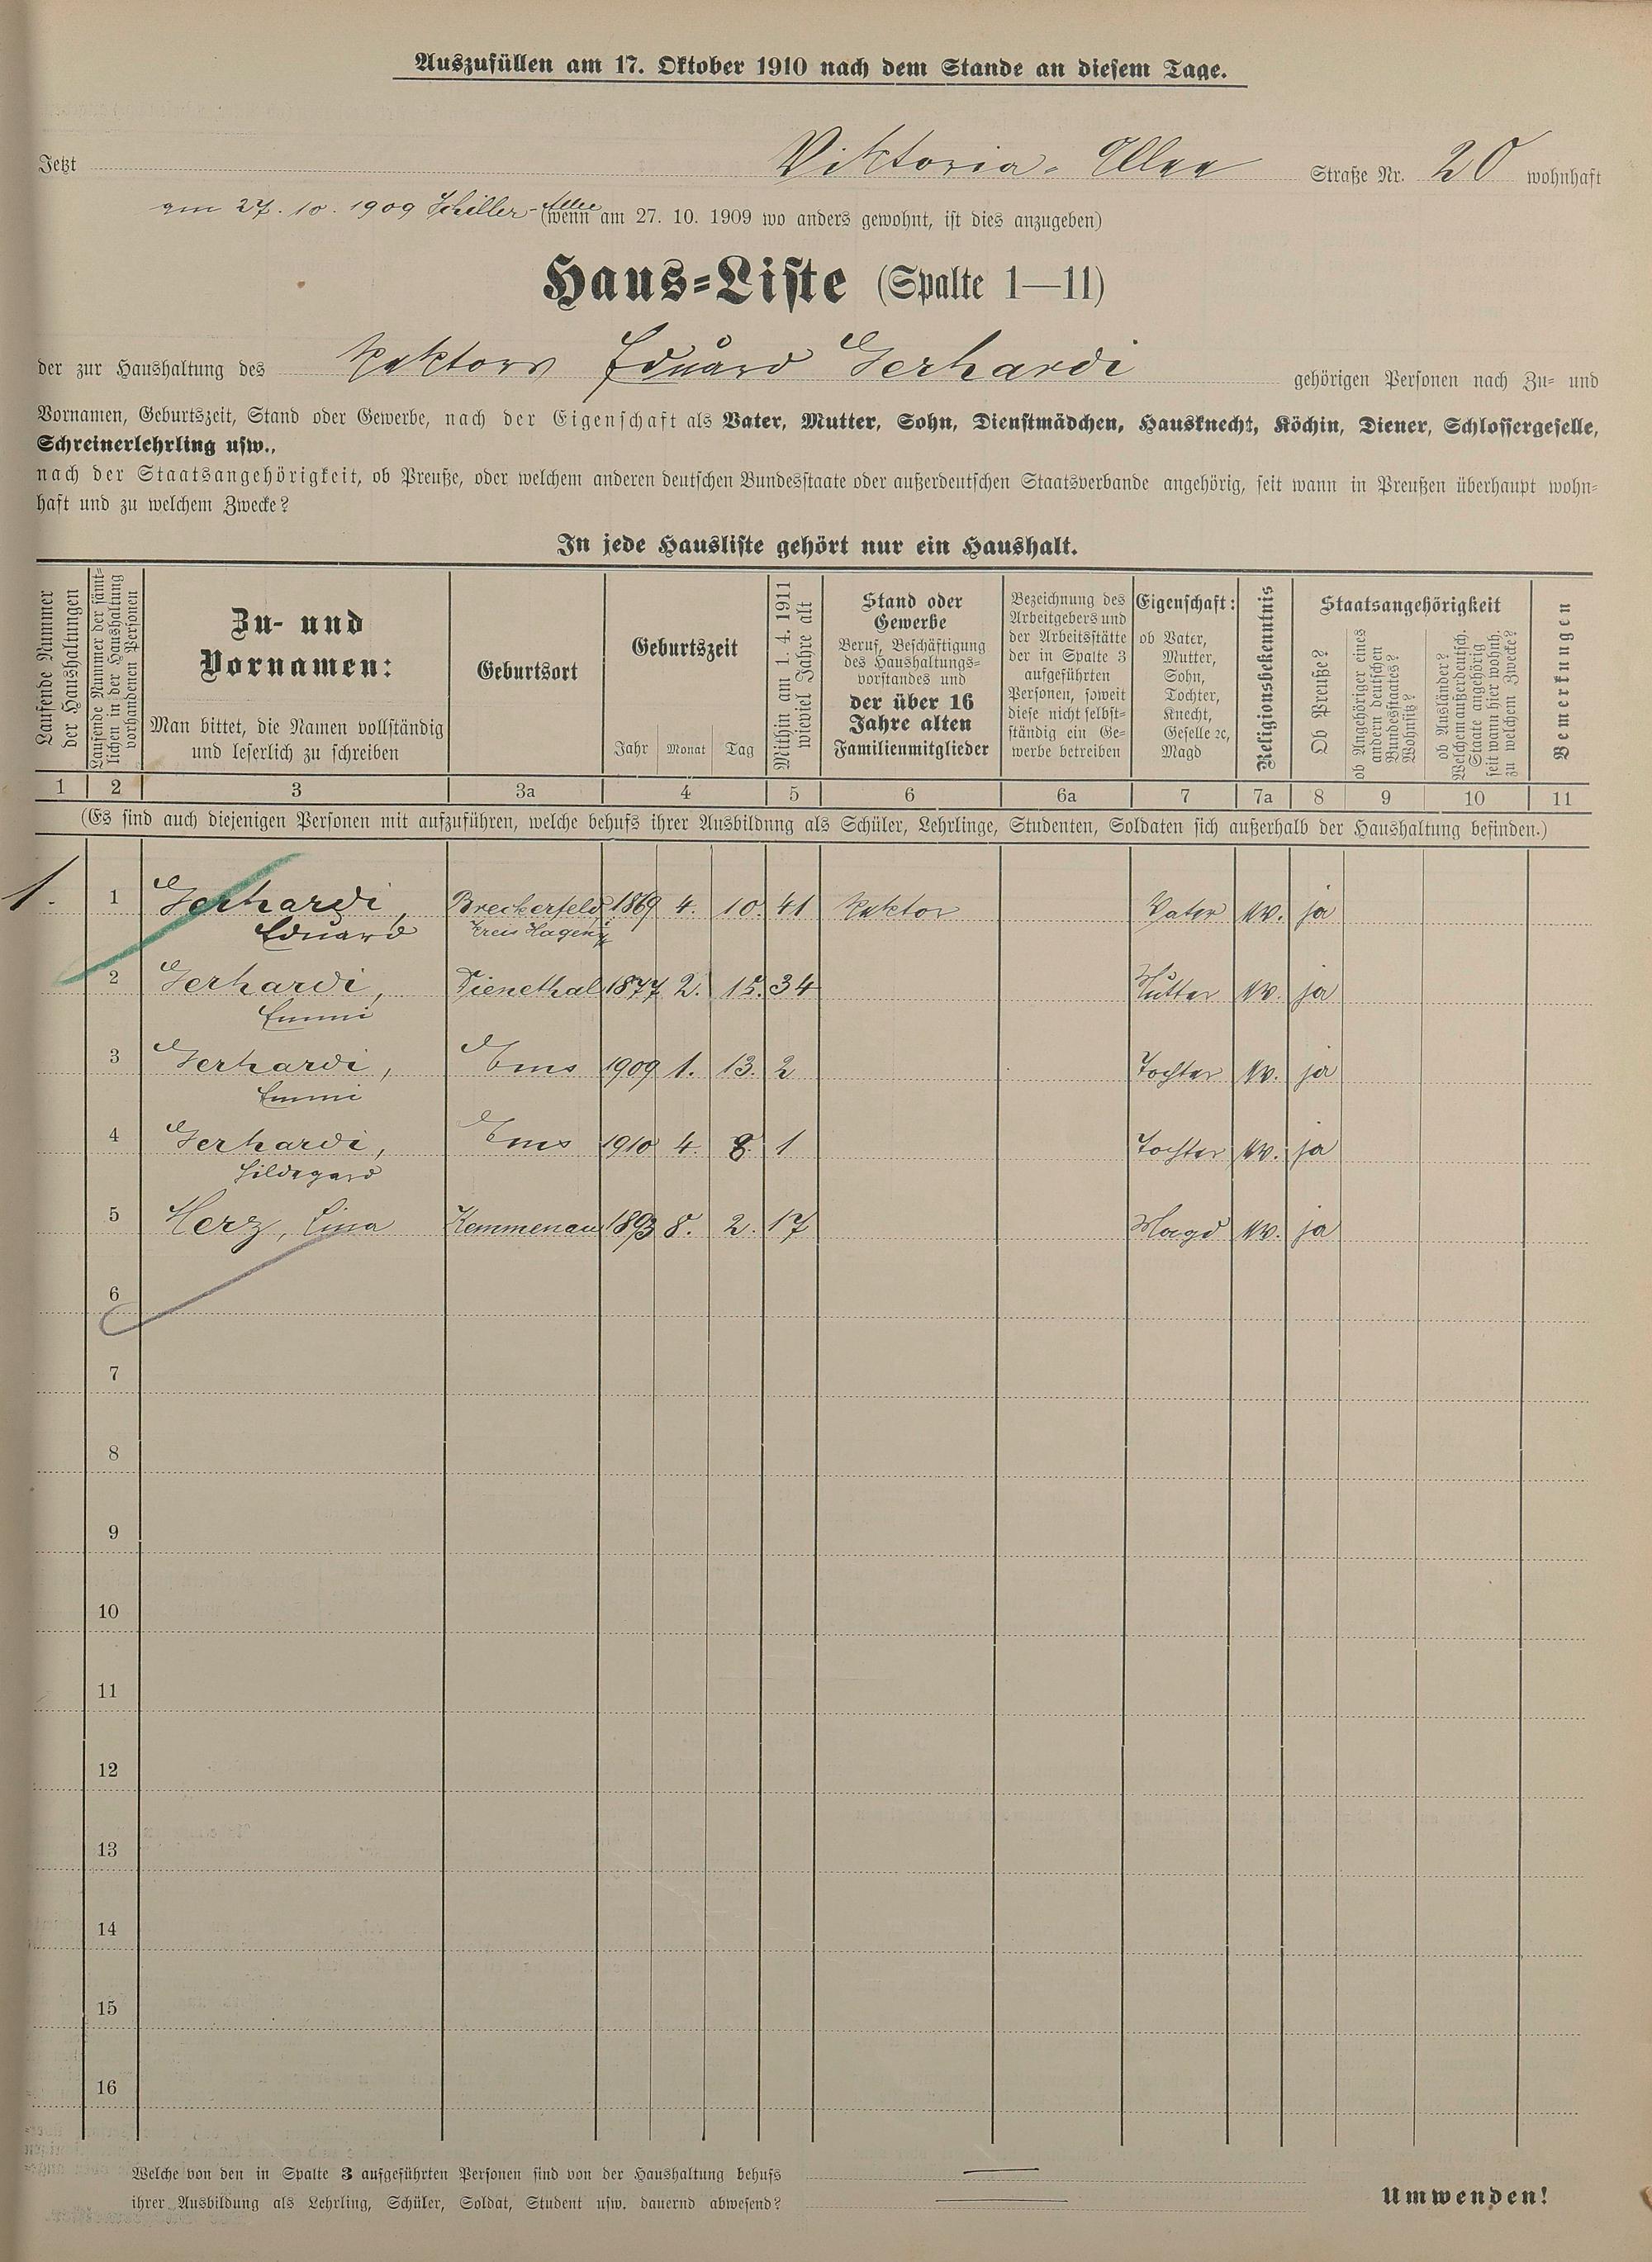 Auszufüllen am 17. Oktober 1910 nach dem Stande an diesem Tage.
Jetzt Viktoria-Allee Straße Nr. 20 wohnhaft
am 27. 10. 1909 Schiller-Allee (wenn am 27. 10. 1909 wo anders gewohnt, ist dies anzugeben)
Haus-Liste (Spalte 1—11)
der zur Haushaltung des Rektors Eduard Gerhardi gehörigen Personen nach Zu- und
Vornamen, Geburtszeit, Stand oder Gewerbe, nach der Eigenschaft als Vater, Mutter, Sohn, Dienstmädchen, Hausknecht, Köchin, Diener, Schlossergeselle,
Schreinerlehrling usw.,
nach der Staatsangehörigkeit, ob Preuße, oder welchem anderen deutschen Bundesstaate oder außerdeutschen Staatsverbande angehörig, seit wann in Preußen überhaupt wohn-
haft und zu welchem Zwecke?
In jede Hausliste gehört nur ein Haushalt.
Laufende Nummer
der Haushaltungen
Laufende Nummer der sämt-
lichen in der Haushaltung
vorhandenen Personen
Zu- und
Vornamen:
Man bittet, die Namen vollständig
und leserlich zu schreiben
Geburtsort
Geburtszeit
Jahr Monat Tag
Mithin am 1. 4. 1911
wieviel Jahre alt
Stand oder
Gewerbe
Beruf, Beschäftigung
des Haushaltungs-
vorstandes und
der über 16
Jahre alten
Familienmitglieder
Bezeichnung des
Arbeitgebers und
der Arbeitsstätte
der in Spalte 3
aufgeführten
Personen, soweit
diese nicht selbst-
ständig ein Ge-
werbe betreiben
Eigenschaft:
ob Vater,
Mutter,
Sohn,
Tochter,
Knecht,
Geselle ꝛc,
Magd
Religionsbekenntnis
Staatsangehörigkeit
Ob Preuße?
ob Angehöriger eines
andern deutschen
Bundesstaates?
Wohnsitz?
ob Ausländer?
Welchem außerdeutsch.
Staate angehörig
seit wann hier wohnh.
zu welchem Zwecke?
Bemerkungen
1 2 3 3a 4 5 6 6a 7 7a 8 9 10 11
(Es sind auch diejenigen Personen mit aufzuführen, welche behufs ihrer Ausbildung als Schüler, Lehrlinge, Studenten, Soldaten sich außerhalb der Haushaltung befinden.)
1. 1 Gerhardi, Breckerfeld 1869 4. 10. 41 Rektor Vater ev. ja
Eduard Kreis Hagen
2 Gerhardi, Dienethal 1877 2. 15. 34 Mutter ev. ja
Emmi
3 Gerhardi, Ems 1909 1. 13. 2 Tochter ev. ja
Emmi
4 Gerhardi, Ems 1910 4. 8. 1 Tochter ev. ja
Hildegard
5 Herz, Lina Kemmenau 1893 8. 2. 17 Magd ev. ja
6
7
8
9
10
11
12
13
14
15
16
Welche von den in Spalte 3 aufgeführten Personen sind von der Haushaltung behufs
ihrer Ausbildung als Lehrling, Schüler, Soldat, Student usw. dauernd abwesend?
Umwenden!